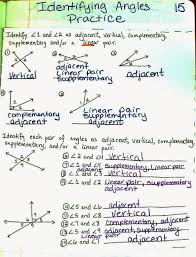 Identifying Angles 15
Practice
Identify ∠1 and ∠2 as adjacent, vertical, complementary,
supplementary and/or a linear pair.
Vertical
adjacent
Linear pair
supplementary
adjacent
complementary
adjacent
Linear pair
Supplementary
adjacent
Identify each pair of angles as adjacent, vertical, complementary,
supplementary, and/or a linear pair.
∠1 and ∠ Vertical
∠1 and ∠ adjacent, supplementary, Linear pair
∠1 and ∠ Linear pair, supplementary
adjacent
∠5 and ∠ adjacent
∠5 and ∠ vertical
∠ and ∠ complementary, adjacent
∠5 and ∠ adjacent, supplementary
∠ and ∠ adjacent